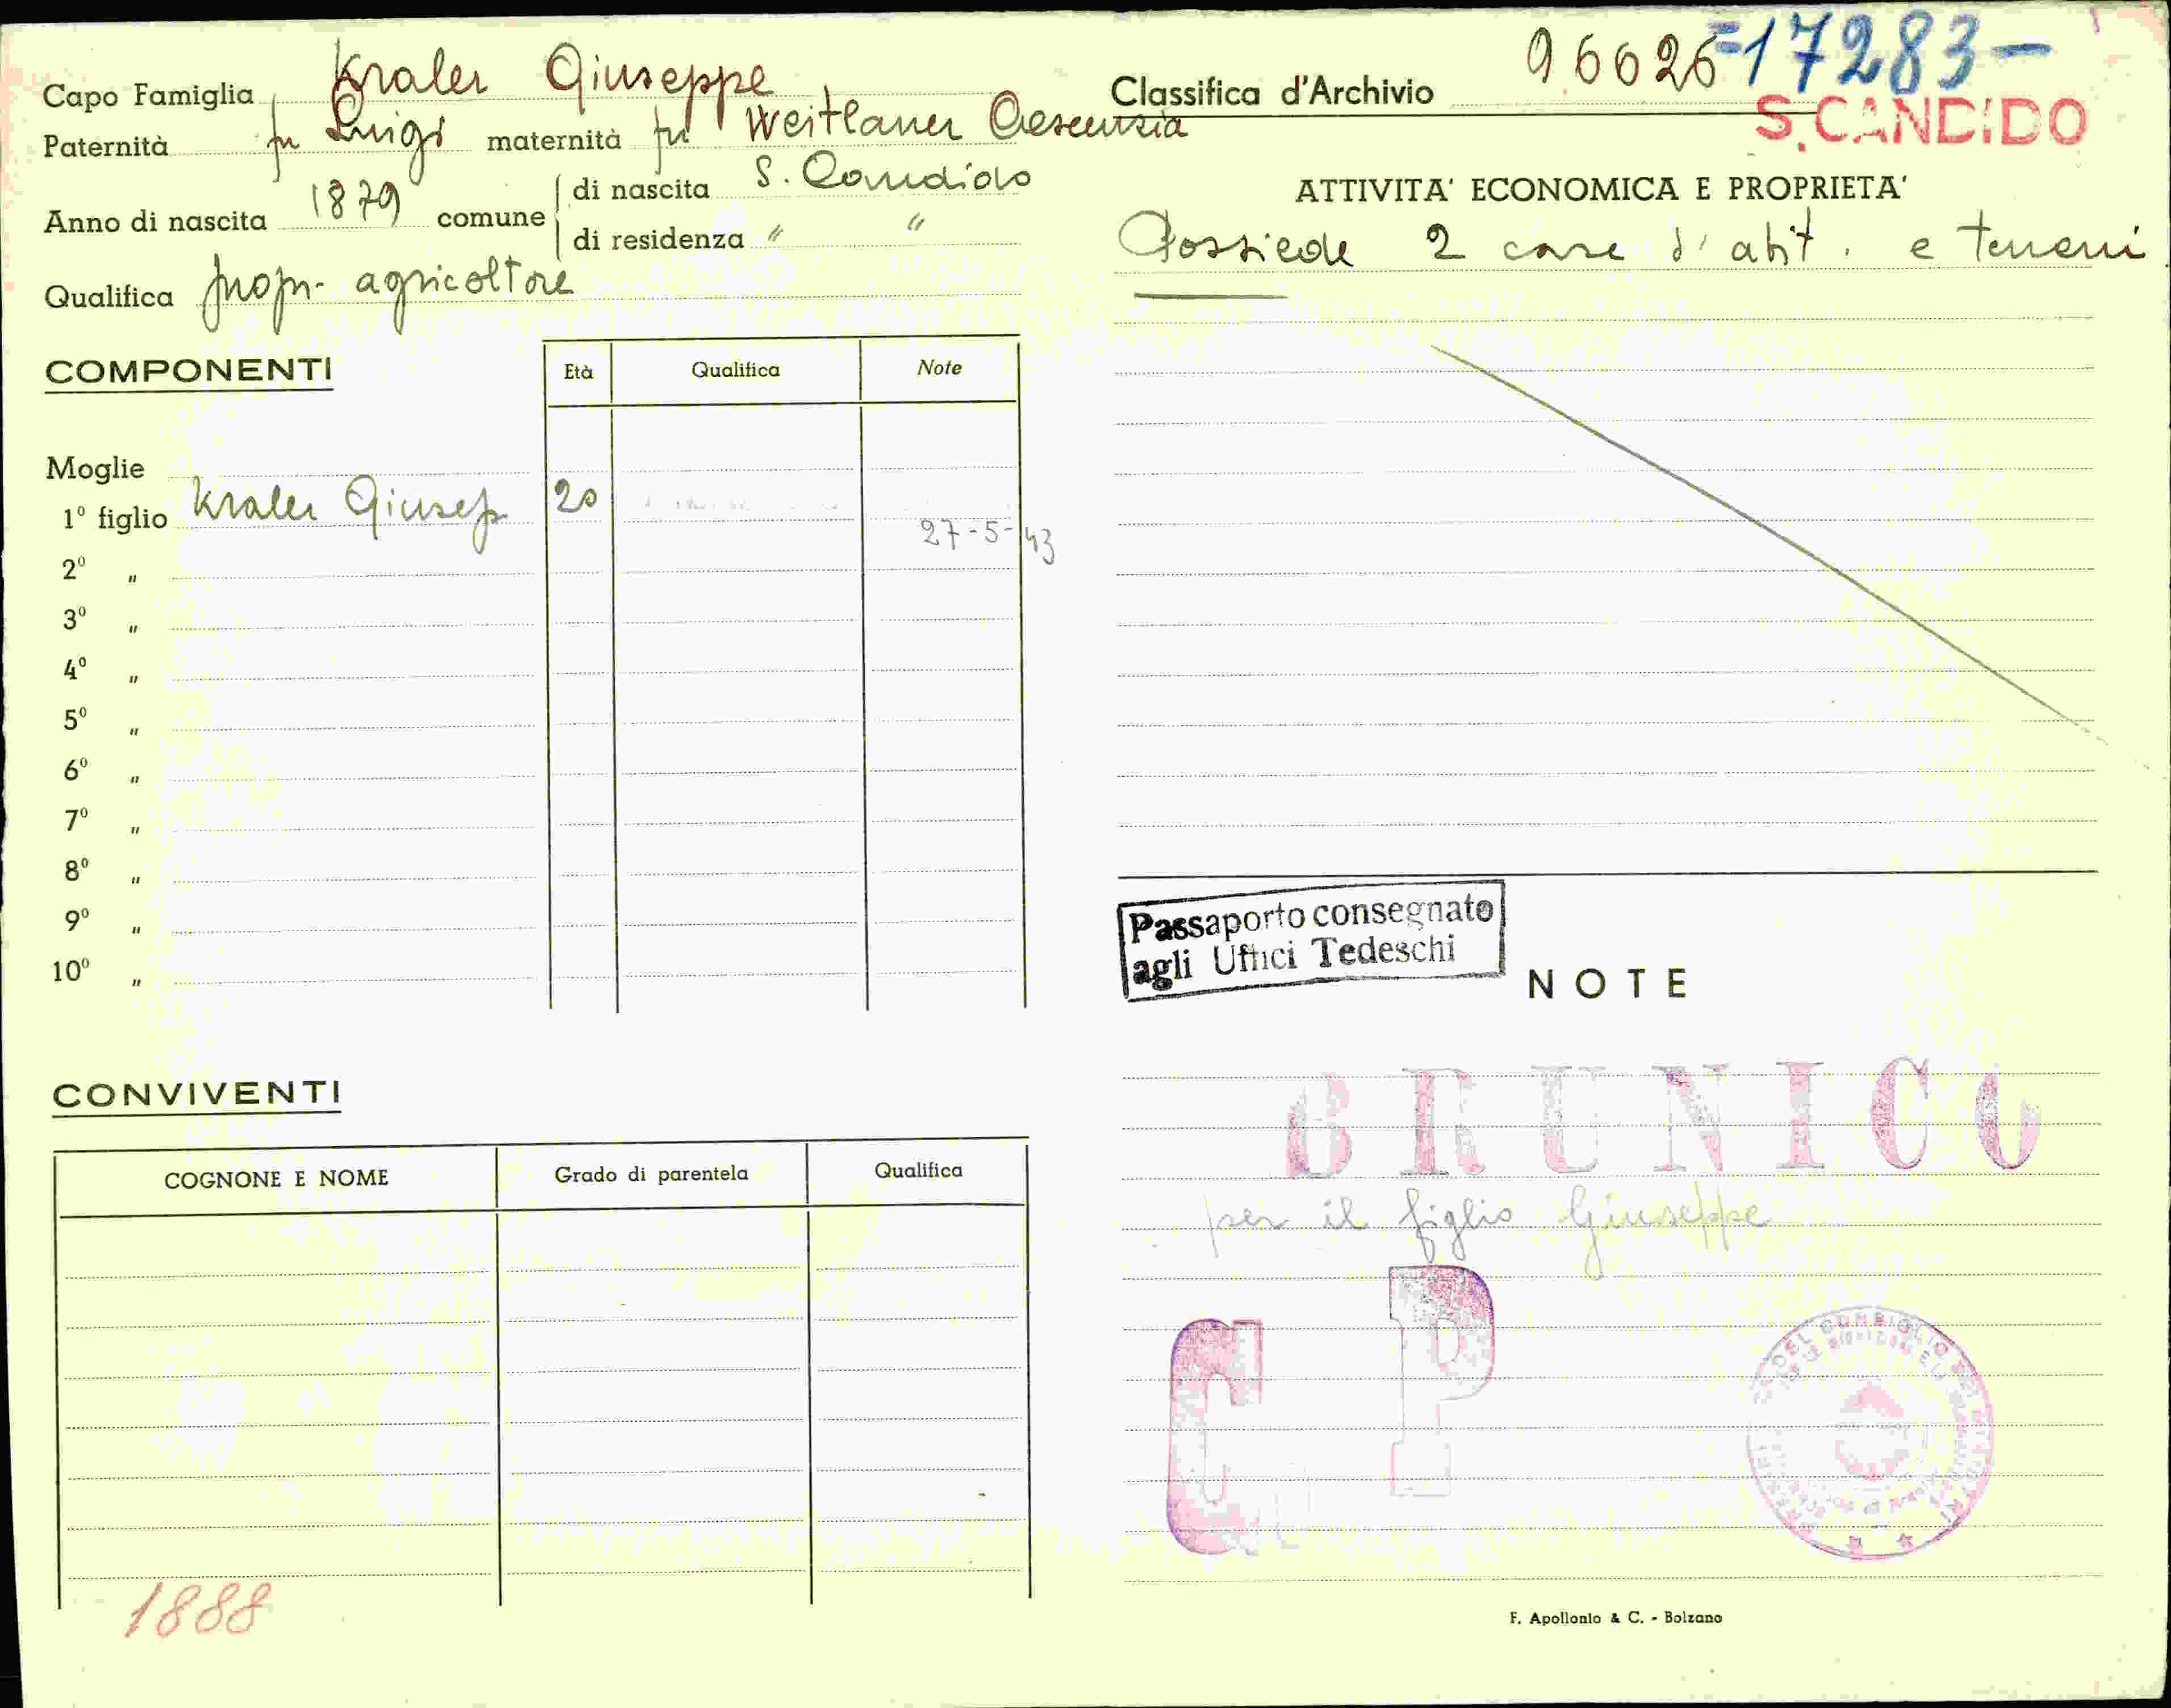 Capo Famiglia Kraler Giuseppe
Paternità fu Luigi maternità fu Weitlaner Crescenzia
Anno di nascita 1879 comune di nascita S. Candido
di residenza " "
Qualifica propr. agricoltore
COMPONENTI
Età Qualifica Note
Moglie
1º figlio Kraler Giusep 20
27-5-43
2º "
3º "
4º "
5º "
6º "
7º "
8º "
9º "
10º "
CONVIVENTI
COGNONE E NOME Grado di parentela Qualifica
1888
Classifica d'Archivio 96626 =17283-
S. CANDIDO
ATTIVITA' ECONOMICA E PROPRIETA'
Possiede 2 case d'abit. e terreni
Passaporto consegnato
agli Uffici Tedeschi
NOTE
BRUNICO
per il figlio Giuseppe
C P
DEL CONSIGLIO
F. Apollonio & C. - Bolzano